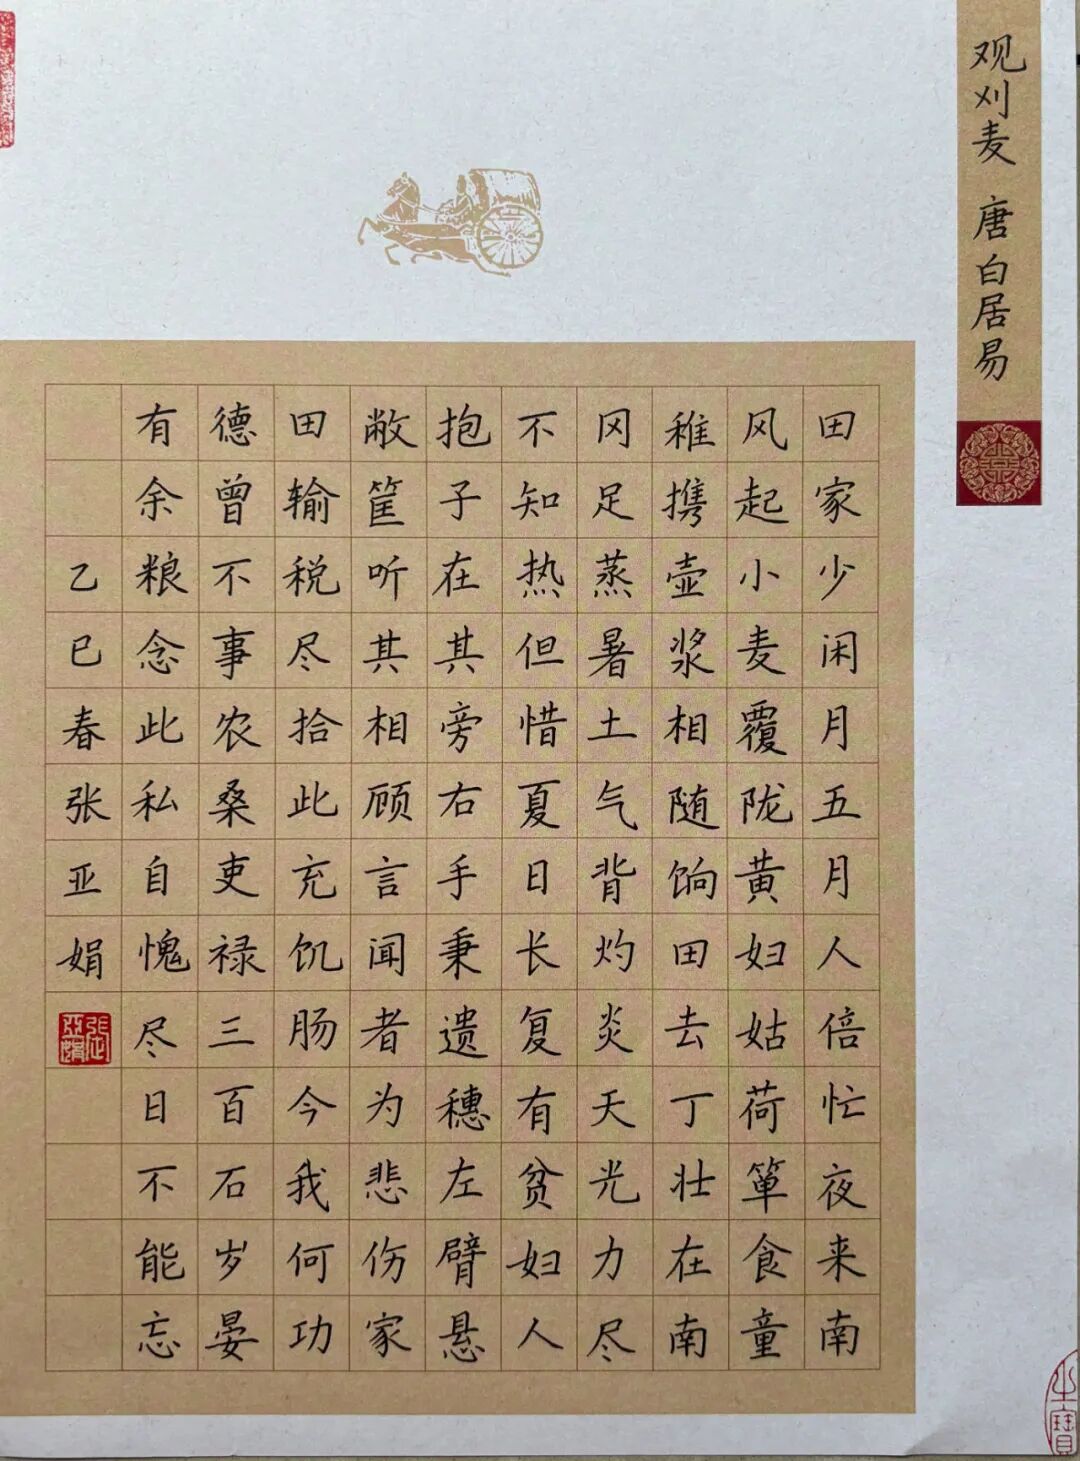 观刈麦 唐 白居易
田家少闲月五月人倍忙夜来南
风起小麦覆陇黄妇姑荷箪食童
稚携壶浆相随饷田去丁壮在南
冈足蒸暑土气背灼炎天光力尽
不知热但惜夏日长复有贫妇人
抱子在其旁右手秉遗穗左臂悬
敝筐听其相顾言闻者为悲伤家
田输税尽拾此充饥肠今我何功
德曾不事农桑吏禄三百石岁晏
有余粮念此私自愧尽日不能忘
乙巳春张亚娟